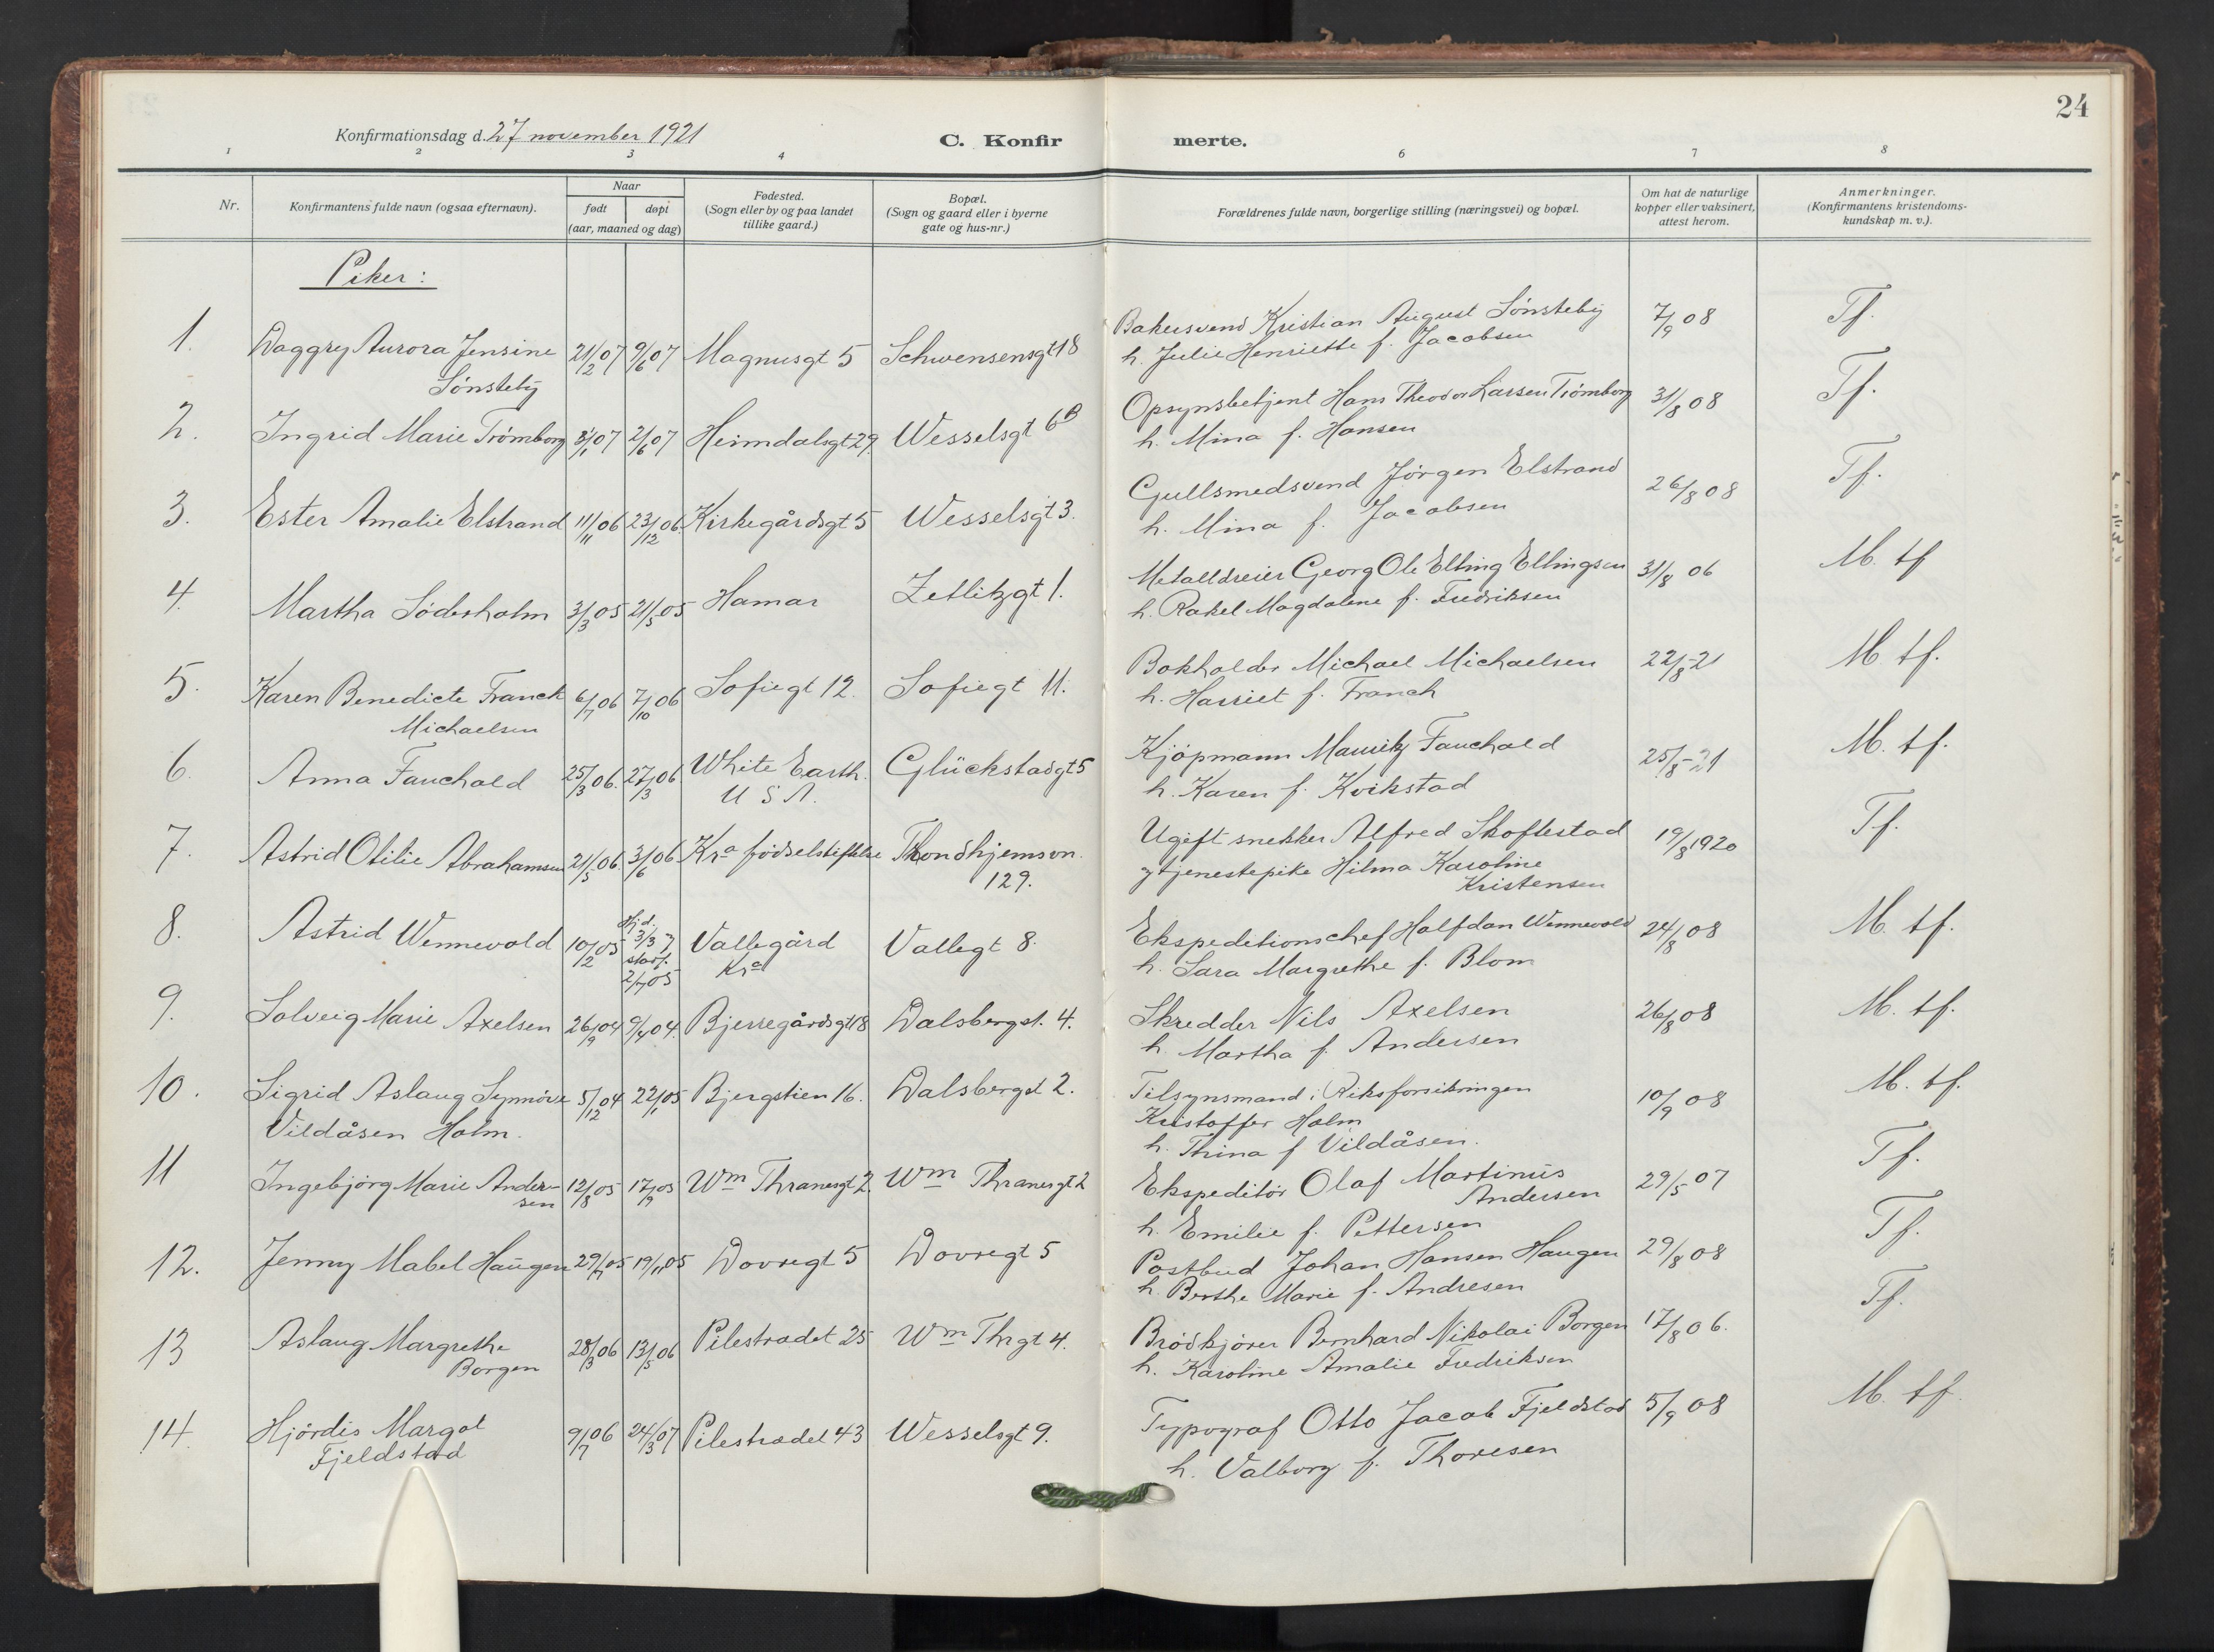 24
Konfirmationsdag d. 27 november 1921
C. Konfir merte.
1 2 3 4 6 7 8
Nr.
Konfirmantens fulde navn (ogsaa efternavn).
Naar
født døpt
(aar, maaned og dag)
Fødested.
(Sogn eller by og paa landet
tillike gaard.)
Bopæl.
(Sogn og gaard eller i byerne
gate og hus-nr.)
Forældrenes fulde navn, borgerlige stilling (næringsvei) og bopæl.
Om hat de naturlige
kopper eller vaksinert,
attest herom.
Anmerkninger.
(Konfirmantens kristendoms-
kundskap m. v.).
Piker:
1. Daggry Aurora Jensine 21/2 07 9/6 07 Magnusgt 5 Schwensensgt 18 Bakersvend Kristian August Sönsteby 7/9 08 Tf.
Sönsteby h. Julie Henriette f. Jacobsen
2. Ingrid Marie Trömborg 8/1 07 2/6 07 Heimdalsgt 29. Wesselsgt 6B Opsynsbetjent Hans Theodor Larsen Trömborg 31/8 08 Tf.
h. Mina f. Hansen
3. Ester Amalie Elstrand 11/11 06 23/12 06. Kirkegårdsgt 5 Wesselsgt 3. Gullsmedsvend Jörgen Elstrand 26/8 08 Tf.
h. Mina f. Jacobsen
4. Martha Söderholm 3/3 05 21/5 05 Hamar Zetlitzgt 1. Metalldreier Georg Ole Elling Ellingsen 31/8 06 M. tf
h. Rakel Magdalene f. Fredriksen
5. Karen Benedicte Franck 6/7 06 7/10 06 Sofiegt 12. Sofiegt 11. Bokholder Michael Michaelsen 22/8-21 M tf.
Michaelsen h. Harriet f. Franck
6. Anna Fauchald 25/3 06. 27/3 06 White Earth. Glückstadgt 5 Kjöpmann Mauritz Fauchald 25/8-21 M. tf.
U S A. h. Karen f. Kvikstad
7. Astrid Otilie Abrahamsen 21/5 06. 3/6 06 Kra födselstiftelse Thondhjemsvn. Ugift snekker Alfred Skoftestad 19/8 1920 Tf.
129. og tjenestepike Hilma Karoline
Kristensen
8. Astrid Wennevold 10/2 05 Hjd. 3/3 Vallegård Vallegt 8. Ekspeditionschef Halfdan Wennevold 24/8 08 M. tf.
stadf. 2/7 05 Kra h. Sara Margrethe f. Blom
9. Solveig Marie Axelsen 26/9 04 9/4 04. Bjerregårdsgt 18 Dalsbergst. 4. Skredder Nils Axelsen 26/8 08 M. tf.
h. Martha f. Andersen
10. Sigrid Aslaug Synnöve 5/12 04 22/1 05 Bjergstien 16. Dalsbergst 2. Tilsynsmand i Riksforsikringen 10/9 08 M. tf.
Vildåsen Holm. Kristoffer Holm
h. Thina f Vildåsen.
11 Ingebjörg Marie Ander- 12/8 05 17/9 05 Wm Thranesgt 2. Wm Thranesgt 2 Ekspeditör Olaf Martinus 29/5 07 Tf.
sen Andersen
h. Emilie f. Pettersen
12. Jenny Mabel Haugen 29/7 05 19/11 05 Dovregt 5 Dovregt 5 Postbud Johan Hansen Haugen 29/8 08 Tf.
h. Berthe Marie f. Andresen
13 Aslaug Margrethe 28/3 06 13/5 06 Pilestradet 25 Wm Thrgt 4. Brödkjörer Bernhard Nikolai Borgen 17/8 06. Tf.
Borgen h. Karoline Amalie Fredriksen
14. Hjördis Margot 9/7 06 24/3 07 Pilestradet 43 Wesselsgt 9. Typograf Otto Jacob Fjeldstad 5/9 08 M. tf.
Fjeldstad h. Valborg f. Thoresen